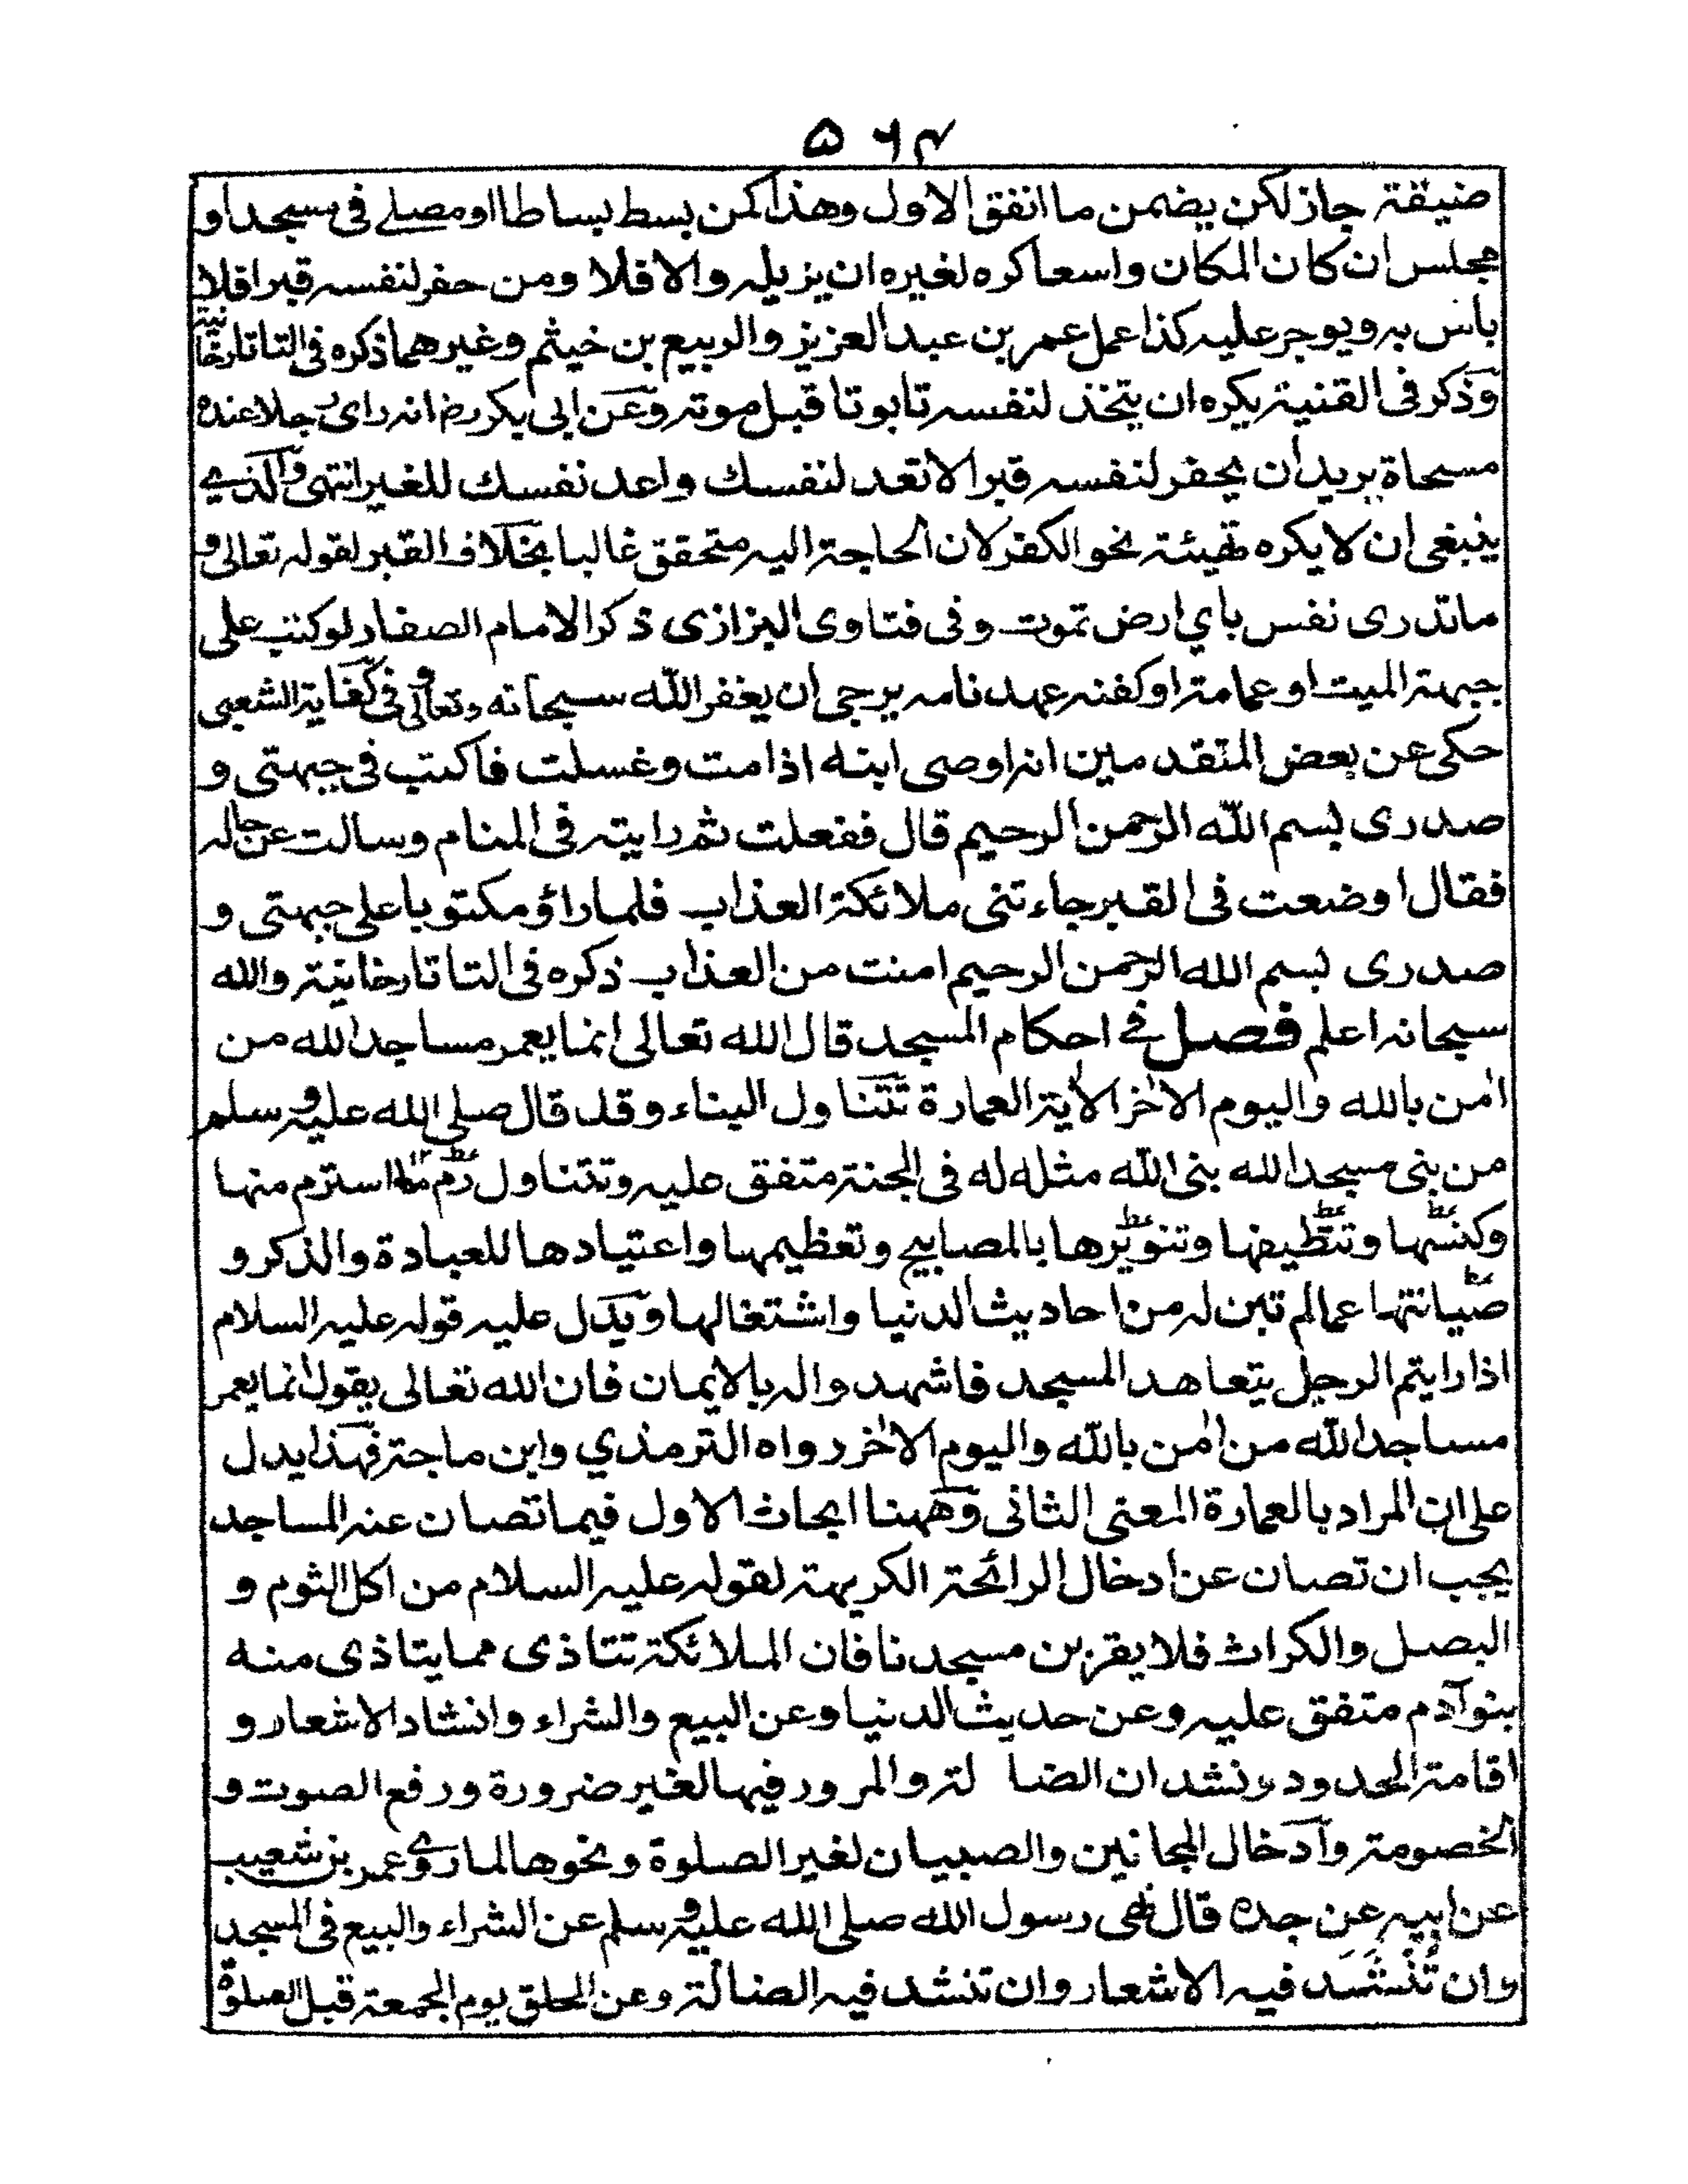 ۵۶۴
ضيقة جاز لكن يضمن ما انفق الاول وهذا كمن بسط بساطا او مصلے فی مسجد او
مجلس ان كان المكان واسعا كره لغيره ان يزيله والا فلا ومن حفر لنفسه قبرا فلا
باس به ويوجر عليه كذا عمل عمر بن عبد العزيز والربيع بن خيثم وغيرهما ذكره فی التاتارخانية
وذكر فی القنية يكره ان يتخذ لنفسه تابوتا قبل موته وعن ابی بكر رض انه رای رجلا عنده
مسحاة يريد ان يحفر لنفسه قبرا لا تعد لنفسك واعد نفسك للغير انتهی والذے
ينبغی ان لا يكره تهيئة نحو الكفن لان الحاجة اليه متحقق غالبا بخلاف القبر لقوله تعالی و
ماتدری نفس باي ارض تموت وفی فتاوی البزازی ذكر الامام الصفار لو كتب علی
جبهة الميت او عمامة او كفنه عهد نامه يرجی ان يغفر الله سبحانه وتعالی وفی كفاية الشعبی
حكی عن بعض المتقدمين انه اوصی ابنه اذا مت وغسلت فاكتب فی جبهتی و
صدری بسم الله الرحمن الرحيم قال ففعلت ثم رايته فی المنام وسالت عن حاله
فقال اوضعت فی القبر جاءتنی ملائكة العذاب فلما راؤ مكتوبا علی جبهتی و
صدری بسم الله الرحمن الرحيم امنت من العذاب ذكره فی التاتارخانية والله
سبحانه اعلم فصل فے احكام المسجد قال الله تعالی انما يعمر مساجد الله من
اٰمن بالله واليوم الاٰخر الاٰية العمارة تتناول البناء وقد قال صلی الله عليه وسلم
من بنی مسجدا لله بنی الله مثله له فی الجنة متفق عليه وتتناول رم ما استرم منها
وكنسها وتنظيفها وتنويرها بالمصابيح وتعظيمها واعتيادها للعبادة والذكر و
صيانتها عما لم تبن له من احاديث الدنيا واشتغالها ويدل عليه قوله عليه السلام
اذا رايتم الرجل يتعاهد المسجد فاشهدوا له بالايمان فان الله تعالی يقول انما يعمر
مساجد الله من اٰمن بالله واليوم الاٰخر رواه الترمذي وابن ماجة فهذا يدل
علی ان المراد بالعمارة المعنی الثانی وههنا ابحاث الاول فيما تصان عنه المساجد
يجب ان تصان عن ادخال الرائحة الكريهة لقوله عليه السلام من اكل الثوم و
البصل والكراث فلا يقربن مسجدنا فان الملائكة تتاذی مما يتاذی منه
بنو آدم متفق عليه وعن حديث الدنيا وعن البيع والشراء وانشاد الاشعار و
اقامة الحدود ونشدان الضا لة والمرور فيها لغير ضرورة ورفع الصوت و
الخصومة وادخال المجانين والصبيان لغير الصلوة ونحوها لما روے عمر بن شعيب
عن ابيه عن جده قال نهی رسول الله صلی الله عليه وسلم عن الشراء والبيع فی المسجد
وان تُنْشَد فيه الاشعار وان تنشد فيه الضالة وعن الحلق يوم الجمعة قبل الصلوة